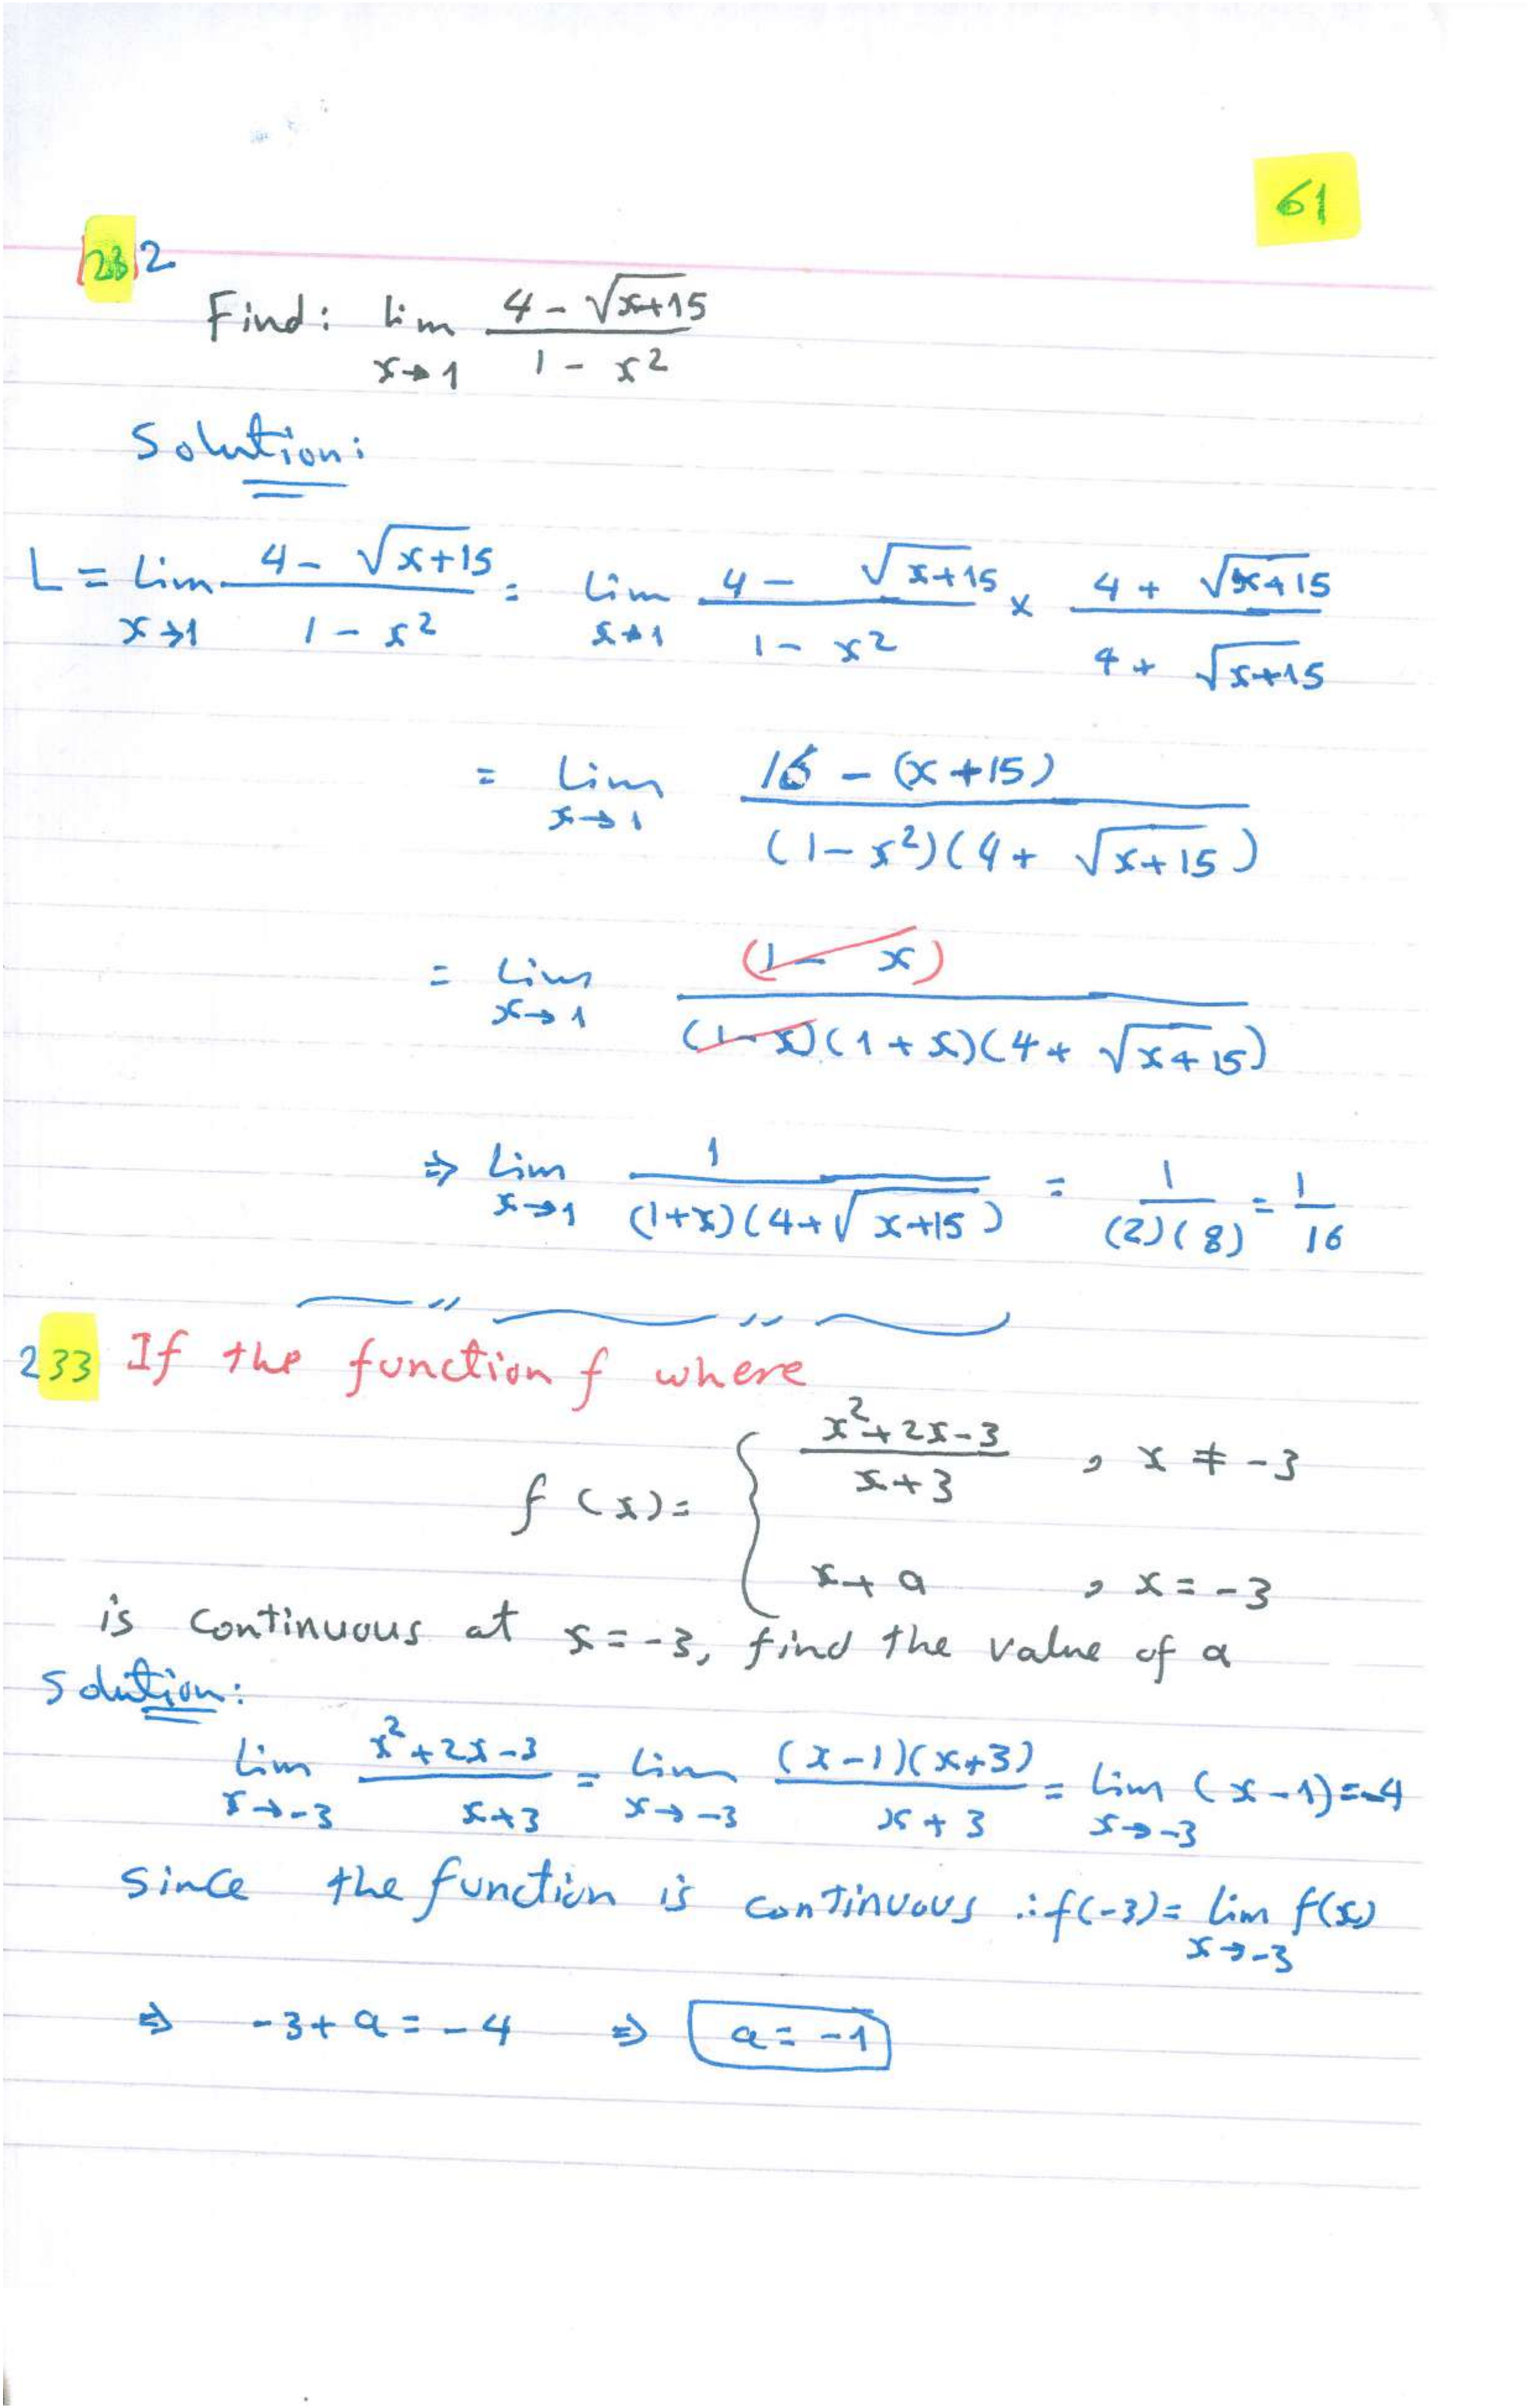 61
232
Find: lim x→1 (4 - √(x+15)) / (1 - x²)
Solution:
L = lim x→1 (4 - √(x+15)) / (1 - x²) = lim x→1 (4 - √(x+15)) / (1 - x²) × (4 + √(x+15)) / (4 + √(x+15))
= lim x→1 (16 - (x+15)) / ((1-x²)(4 + √(x+15)))
= lim x→1 (1 - x) / ((1-x)(1+x)(4 + √(x+15)))
⇒ lim x→1 1 / ((1+x)(4+√(x+15))) = 1 / ((2)(8)) = 1/16
233 If the function f where
f(x) = { (x²+2x-3) / (x+3) , x ≠ -3
x + a , x = -3
is continuous at x = -3, find the value of a
Solution:
lim x→-3 (x²+2x-3) / (x+3) = lim x→-3 ((x-1)(x+3)) / (x+3) = lim x→-3 (x-1) = -4
Since the function is continuous ∴ f(-3) = lim x→-3 f(x)
⇒ -3 + a = -4 ⇒ a = -1